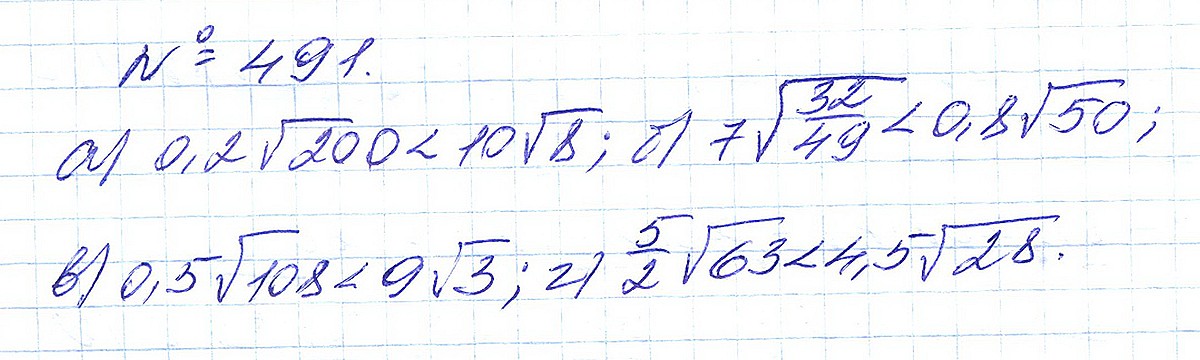 № 491.
а) 0,2√200 < 10√8; б) 7√(32/49) < 0,8√50;
в) 0,5√108 < 9√3; г) 5/2 √63 < 4,5√28.